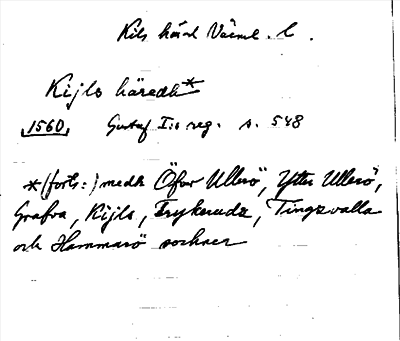 Kils härad Värml. l.
Kijls häredh*
1560, Gustaf I:s reg. s. 548
*(forts:) medh Öfver Ullerö, Ytter Ullerö,
Grafva, Kijls, Frykerudz, Tingzvalla
och Hammarö sochner